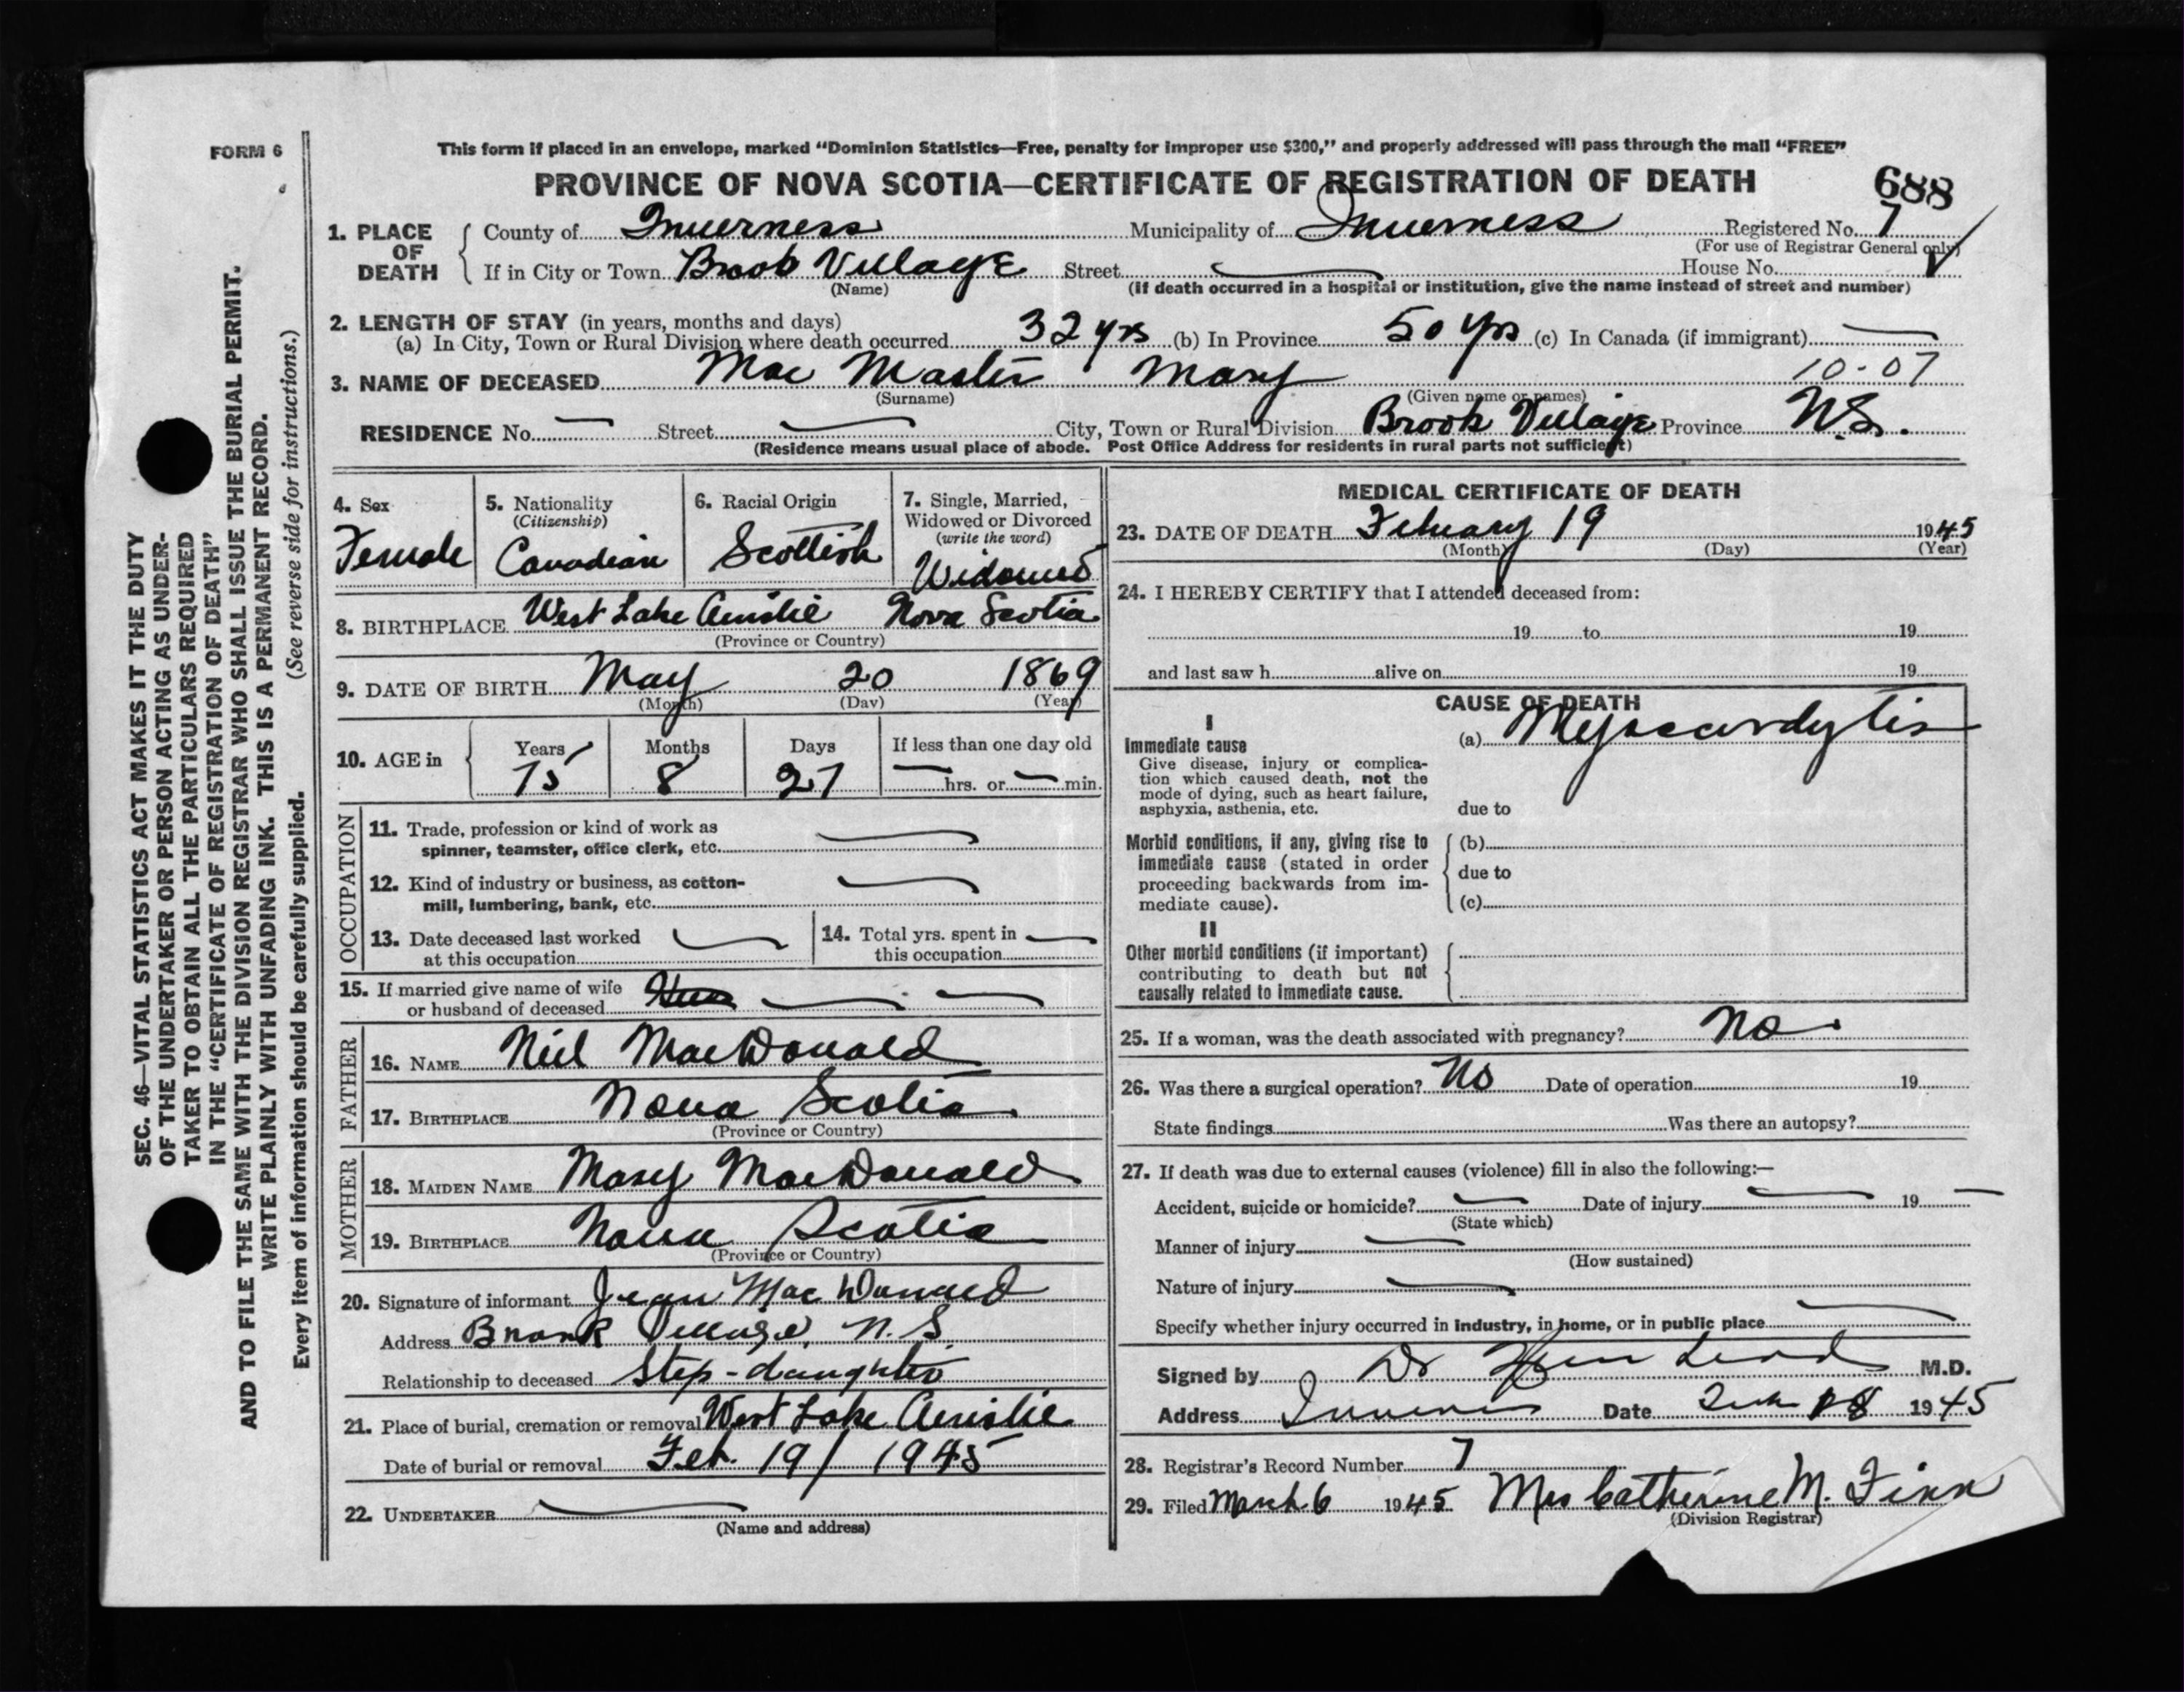 FORM 6
This form if placed in an envelope, marked "Dominion Statistics—Free, penalty for improper use $300," and properly addressed will pass through the mail "FREE"
PROVINCE OF NOVA SCOTIA—CERTIFICATE OF REGISTRATION OF DEATH
688
1. PLACE OF DEATH
County of Inverness Municipality of Inverness Registered No. 7
(For use of Registrar General only)
If in City or Town Brook Village Street — House No.
(Name) (If death occurred in a hospital or institution, give the name instead of street and number)
2. LENGTH OF STAY (in years, months and days)
(a) In City, Town or Rural Division where death occurred 32 yrs (b) In Province 50 yrs (c) In Canada (if immigrant) —
3. NAME OF DECEASED Mac Master Mary 10-07
(Surname) (Given name or names)
RESIDENCE No. — Street — City, Town or Rural Division Brook Village Province N.S.
(Residence means usual place of abode. Post Office Address for residents in rural parts not sufficient)
4. Sex
Female
5. Nationality
(Citizenship)
Canadian
6. Racial Origin
Scottish
7. Single, Married,
Widowed or Divorced
(write the word)
Widowed
8. BIRTHPLACE West Lake Ainslie Nova Scotia
(Province or Country)
9. DATE OF BIRTH May 20 1869
(Month) (Day) (Year)
10. AGE in
Years Months Days If less than one day old
75 8 27 — hrs. or — min.
OCCUPATION
11. Trade, profession or kind of work as
spinner, teamster, office clerk, etc. —
12. Kind of industry or business, as cotton-
mill, lumbering, bank, etc. —
13. Date deceased last worked
at this occupation —
14. Total yrs. spent in
this occupation —
15. If married give name of wife
or husband of deceased — —
FATHER
16. NAME Niel MacDonald
17. BIRTHPLACE Nova Scotia
(Province or Country)
MOTHER
18. MAIDEN NAME Mary MacDonald
19. BIRTHPLACE Nova Scotia
(Province or Country)
20. Signature of informant Jean MacDonald
Address Brook Village, N.S.
Relationship to deceased Step-daughter
21. Place of burial, cremation or removal West Lake Ainslie
Date of burial or removal Feb. 19/ 1945
22. UNDERTAKER —
(Name and address)
MEDICAL CERTIFICATE OF DEATH
23. DATE OF DEATH February 19 1945
(Month) (Day) (Year)
24. I HEREBY CERTIFY that I attended deceased from:
19 to 19
and last saw h alive on 19
CAUSE OF DEATH
I
Immediate cause
Give disease, injury or complica-
tion which caused death, not the
mode of dying, such as heart failure,
asphyxia, asthenia, etc.
(a) Myocardytis
due to
Morbid conditions, if any, giving rise to
immediate cause (stated in order
proceeding backwards from im-
mediate cause).
(b)
due to
(c)
II
Other morbid conditions (if important)
contributing to death but not
causally related to immediate cause.
25. If a woman, was the death associated with pregnancy? No
26. Was there a surgical operation? No Date of operation 19
State findings Was there an autopsy?
27. If death was due to external causes (violence) fill in also the following:—
Accident, suicide or homicide? — Date of injury — 19 —
(State which)
Manner of injury —
(How sustained)
Nature of injury —
Specify whether injury occurred in industry, in home, or in public place —
Signed by Dr M.D.
Address Date 1945
28. Registrar's Record Number 7
29. Filed March 6 1945 Mrs Catherine M. Finn
(Division Registrar)
SEC. 46—VITAL STATISTICS ACT MAKES IT THE DUTY
OF THE UNDERTAKER OR PERSON ACTING AS UNDER-
TAKER TO OBTAIN ALL THE PARTICULARS REQUIRED
IN THE "CERTIFICATE OF REGISTRATION OF DEATH"
AND TO FILE THE SAME WITH THE DIVISION REGISTRAR WHO SHALL ISSUE THE BURIAL PERMIT.
WRITE PLAINLY WITH UNFADING INK. THIS IS A PERMANENT RECORD.
Every item of information should be carefully supplied. (See reverse side for instructions.)